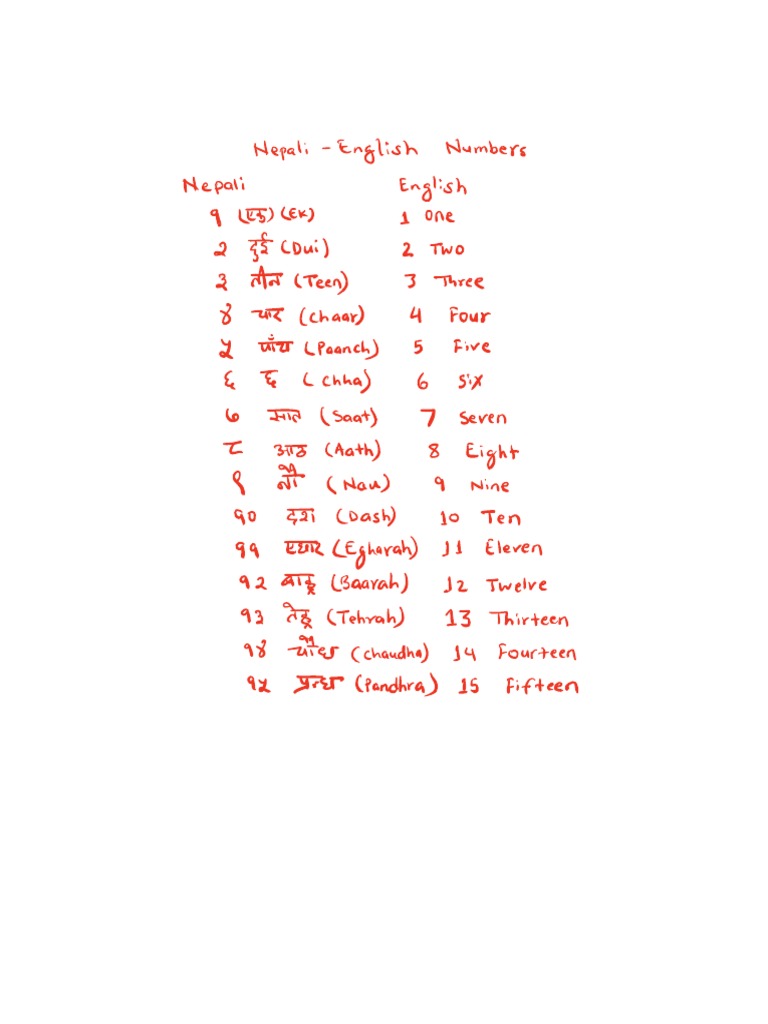 Nepali - English Numbers
Nepali English
१ (एक) (Ek) 1 One
२ दुई (Dui) 2 Two
३ तीन (Teen) 3 Three
४ चार (Chaar) 4 Four
५ पाँच (Paanch) 5 Five
६ छ (Chha) 6 Six
७ सात (Saat) 7 Seven
८ आठ (Aath) 8 Eight
९ नौ (Nau) 9 Nine
१० दश (Dash) 10 Ten
११ एघार (Egharah) 11 Eleven
१२ बाह्र (Baarah) 12 Twelve
१३ तेह्र (Tehrah) 13 Thirteen
१४ चौध (Chaudha) 14 Fourteen
१५ पन्ध्र (Pandhra) 15 Fifteen